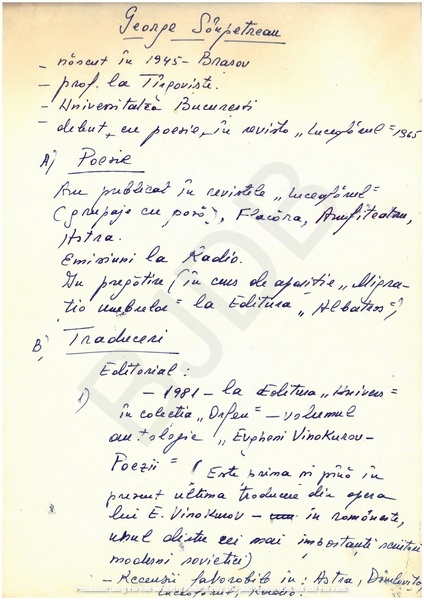 George Sînpetrean
- născut în 1945 - Brașov
- prof. la Tîrgoviște.
- Universitatea București
- debut, cu poezie, în revista "Luceafărul" 1965
A) Poezie
Am publicat în revistele "Luceafărul"
(grupaje cu poză), Flacăra, Amfiteatru,
Astra.
Emisiuni la Radio.
În pregătire (în curs de apariție "Migra-
ția umbrelor" la Editura "Albatros")
B) Traduceri
Editorial:
1) - 1981 - la Editura "Univers"
în colecția "Orfeu" - volumul
antologic "Evgheni Vinokurov -
Poezii" (Este prima și pînă în
prezent ultima traducere din opera
lui E. Vinokurov - în românește,
unul dintre cei mai importanți scriitori
moderni sovietici)
- Recenzii favorabile în: Astra, Dîmbovița,
Luceafărul, Radio.
BJDB